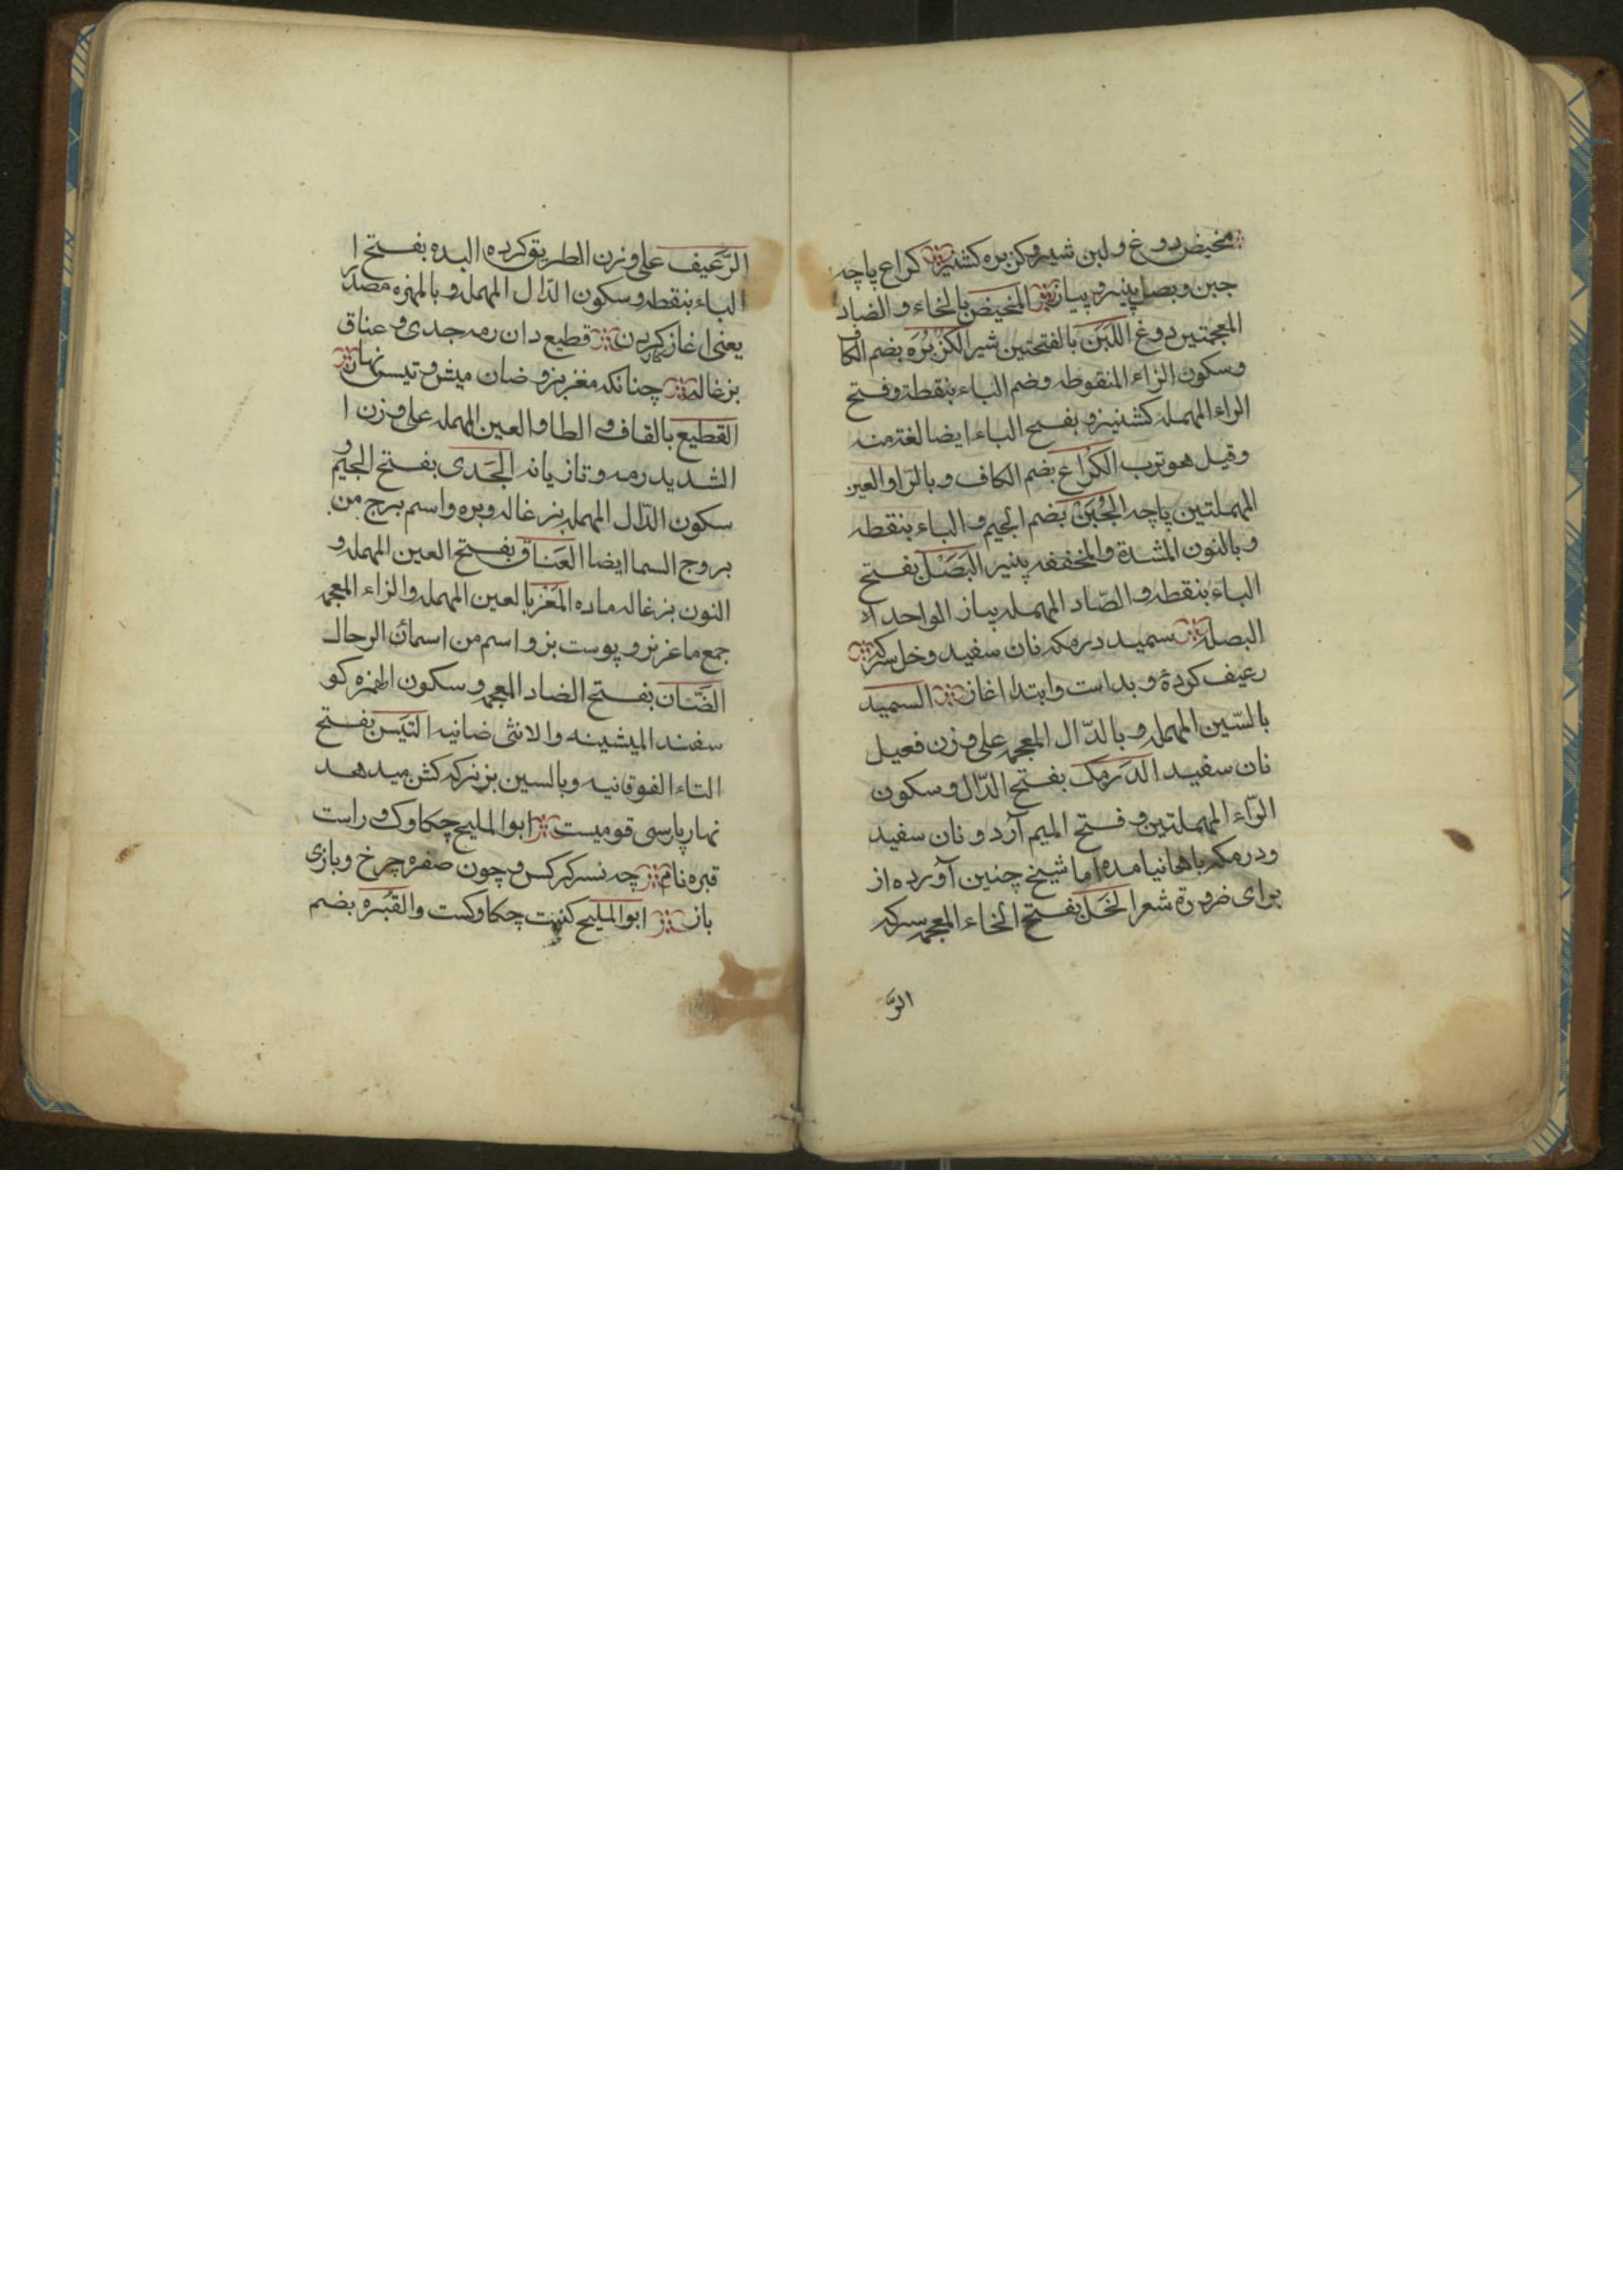 مخیض دوغ ولبن شیر وکزبره کشنیز کراع پاچه
جبن وبصل پنیر و پیاز المخیض بالخاء و الضاد
المعجمتین دوغ اللبن بالفتحتین شیر الکزبره بضم الکاف
وسکون الزاء المنقوطه وضم الباء بنقطة وفتح
الراء المهمله کشنیز و بفتح الباء ایضا لغة منه
وقیل هو ترب الکراع بضم الکاف و بالرا والعین
المهملتین پاچه الجبن بضم الجیم و الباء بنقطه
وبالنون المشدة والمخففه پنیر البصل بفتح
الباء بنقطه و الصاد المهمله پیاز الواحد
البصلة سمید درمکه نان سفید وخل سرکه
رغیف کردۀ و بداست وابتدا اغاز السمید
بالسین المهمله و بالدال المعجمه علی وزن فعیل
نان سفید الدرمک بفتح الدال و سکون
الراء المهملتین و فتح المیم آرد و نان سفید
ودرمکه باهانیامده اما شیخ چنین آورده از
برای ضرورة شعر الخل بفتح الخاء المعجمه سرکه
الر
الرغیف علی وزن الطریق کرده البده بفتح ا
الباء بنقطه و سکون الدال المهمله و بالهمزه مصدر
یعنی اغاز کردن قطیع دان رمه جدی و عناق
بزغاله چنانکه مغز بز و ضان میش و تیس نهاز
القطیع بالقاف و الطا و العین المهمله علی وزن ا
الشدید رمه و تازیانه الجدی بفتح الجیم و
سکون الدال المهمله بزغاله و بره و اسم برج من
بروج السما ایضا العناق بفتح العین المهمله و
النون بزغاله ماده المغز بالعین المهمله والزاء المعجمه
جمع ماعز بز و پوست بز و اسم من اسمائ الرجال
الضان بفتح الضاد المعجمه و سکون الهمزه کو
سفند المیشینه والانثی ضانیه التیس بفتح
التاء الفوقانیه وبالسین بز نر که کش میدهد
نهاز پارسی قومیست ابوا الملیح چکاوک و راست
قبره نام چه نسر کرکس و چون صفره چرخ و بازی
باز ابوا الملیح کنیت چکاوکست والقبره بضم